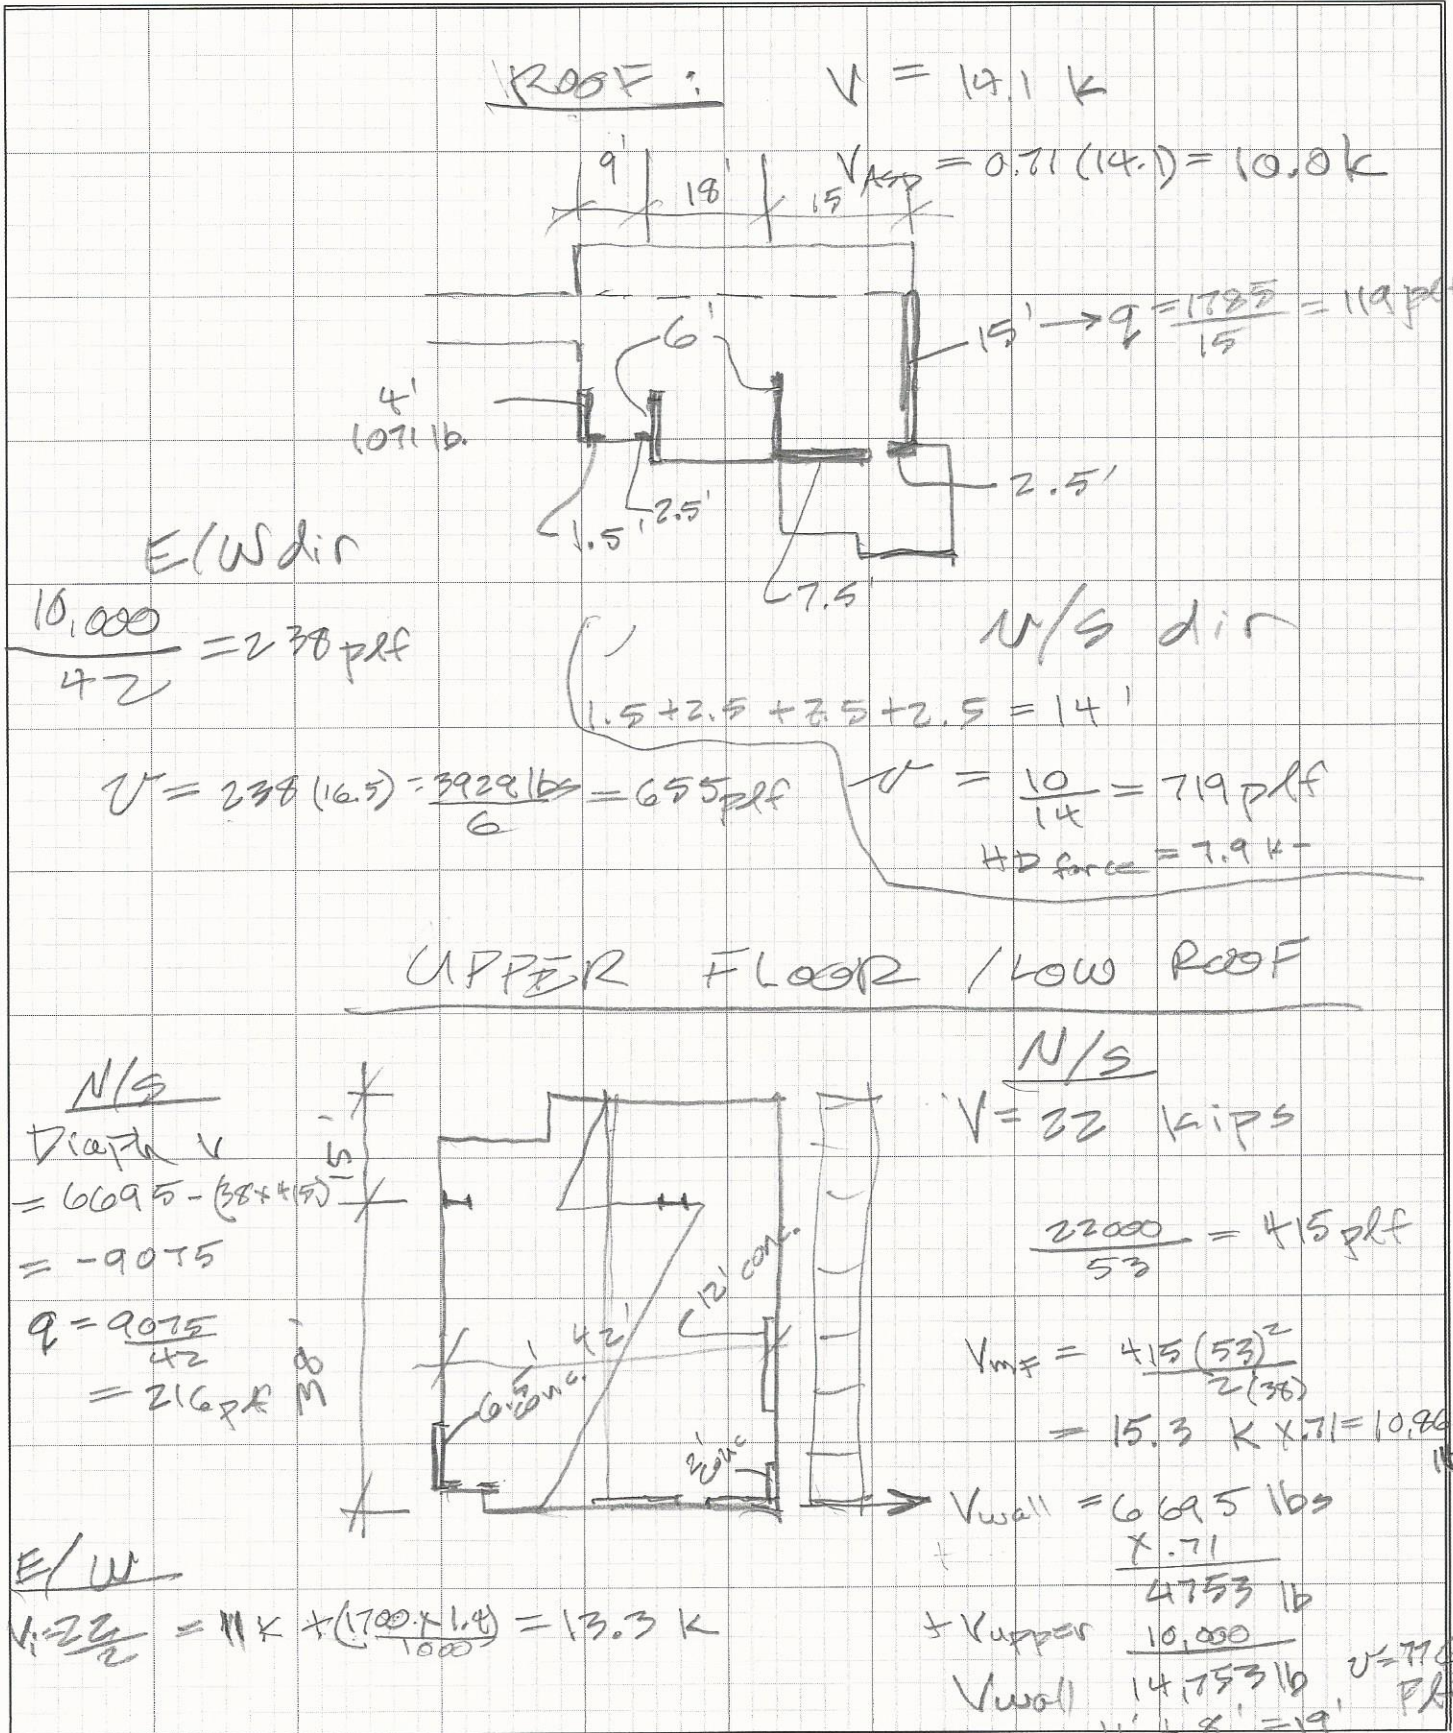 ROOF :
V = 14.1 k
V_ASD = 0.71 (14.1) = 10.0 k
9' 18' 15'
6'
15' → q = 1785/15 = 119 plf
4'
1071 lb.
2.5'
1.5' 2.5'
7.5'
E/W dir
10,000/42 = 238 plf
N/S dir
1.5 + 2.5 + 7.5 + 2.5 = 14'
v = 238 (16.5) = 3928 lbs/6 = 655 plf
v = 10/14 = 719 plf
HD force = 7.9 k
UPPER FLOOR / LOW ROOF
N/S
Diaph v
= 6695 - (38 x 415)
= -9075
q = 9075/42
= 216 plf
15'
38'
42'
12' conc.
6.5' conc.
2' conc
N/S
V = 22 kips
22000/53 = 415 plf
V_MF = 415 (53)²/2 (38)
= 15.3 k x .71 = 10.86 k
Vwall = 6695 lbs
x .71
4753 lb
+ Vupper 10,000
Vwall 14,753 lb
E/W
= 11 k + (1700 x 1.4)/1000 = 13.3 k